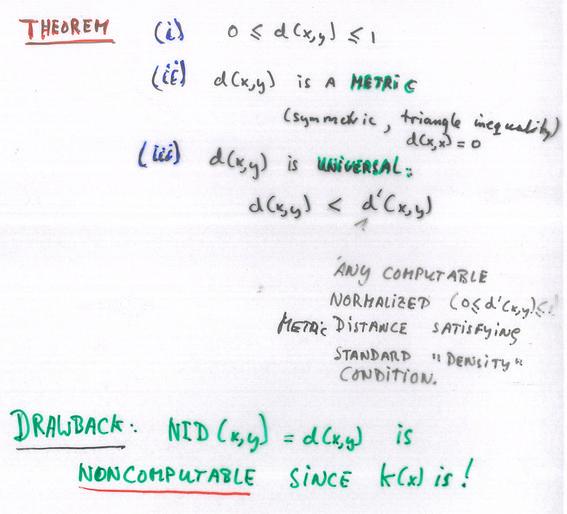 THEOREM (i) 0 ≤ d(x,y) ≤ 1
(ii) d(x,y) is A METRIC
(symmetric, triangle inequality)
d(x,x) = 0
(iii) d(x,y) is UNIVERSAL:
d(x,y) < d'(x,y)
↑
ANY COMPUTABLE
NORMALIZED (0≤d'(x,y)≤1
METRIC DISTANCE SATISFYING
STANDARD "DENSITY"
CONDITION.
DRAWBACK: NID(x,y) = d(x,y) is
NONCOMPUTABLE SINCE K(x) is!